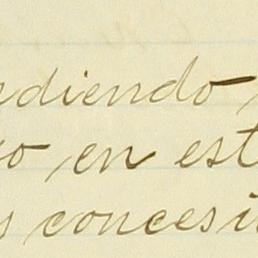 ediendo,
o, en est
s concesi